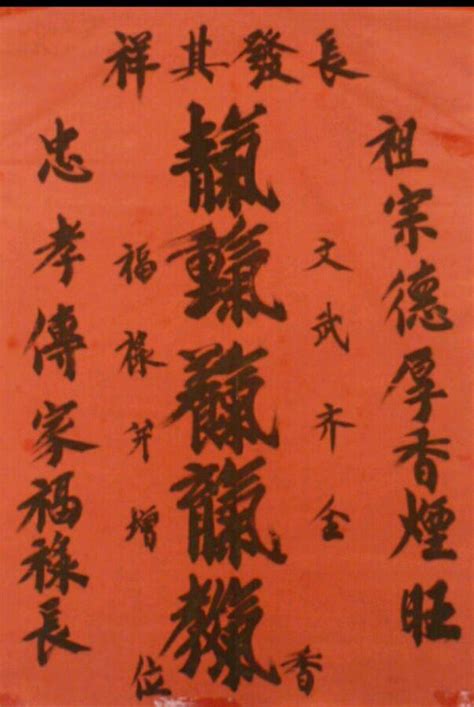 長發其祥
祖宗德厚香煙旺
文武齐全
靝
福祿并增
忠孝傳家福祿長
香位